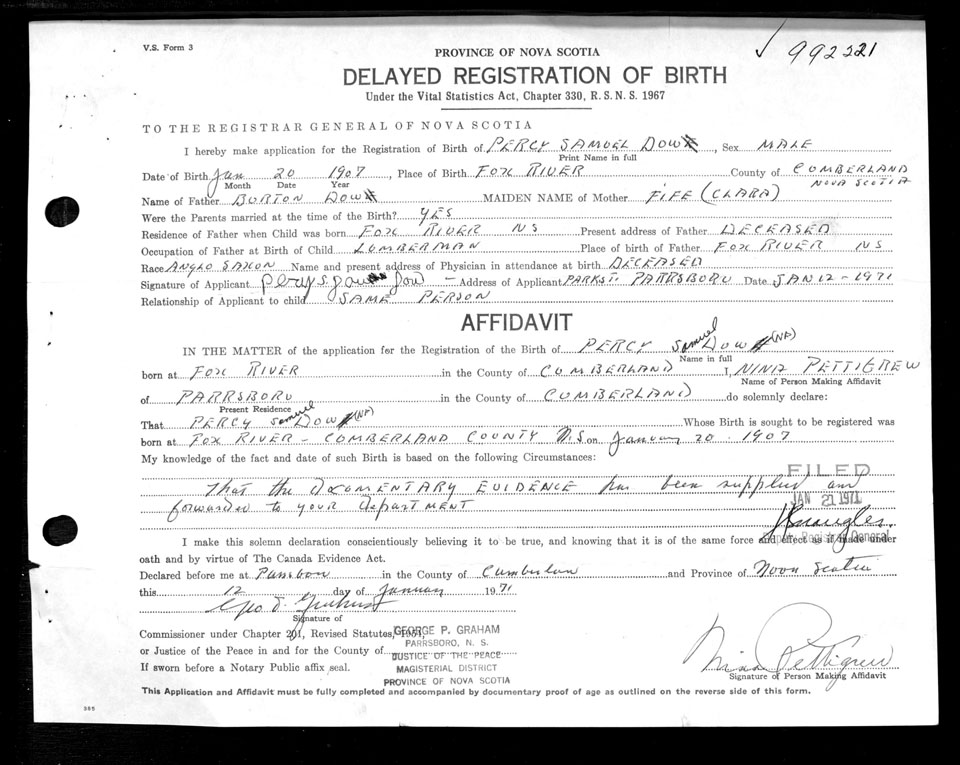 V.S. Form 3
✓ 992221
PROVINCE OF NOVA SCOTIA
DELAYED REGISTRATION OF BIRTH
Under the Vital Statistics Act, Chapter 330, R.S.N.S. 1967
TO THE REGISTRAR GENERAL OF NOVA SCOTIA
I hereby make application for the Registration of Birth of PERCY SAMUEL DOW, Sex MALE
Print Name in full
Date of Birth Jan 20 1907, Place of Birth FOX RIVER County of CUMBERLAND
Month Date Year NOVA SCOTIA
Name of Father BURTON DOW MAIDEN NAME of Mother FIFE (CLARA)
Were the Parents married at the time of the Birth? YES
Residence of Father when Child was born FOX RIVER NS Present address of Father DECEASED
Occupation of Father at Birth of Child LUMBERMAN Place of birth of Father FOX RIVER NS
Race ANGLO SAXON Name and present address of Physician in attendance at birth DECEASED
Signature of Applicant Percy S. Dow Address of Applicant PARK ST. PARRSBORO Date JAN 12 - 1971
Relationship of Applicant to child SAME PERSON
AFFIDAVIT
IN THE MATTER of the application for the Registration of the Birth of PERCY Samuel DOW (NP)
Name in full
born at FOX RIVER in the County of CUMBERLAND I, NINA PETTIGREW
Name of Person Making Affidavit
of PARRSBORO in the County of CUMBERLAND do solemnly declare:
Present Residence
That PERCY Samuel DOW (NP) Whose Birth is sought to be registered was
born at FOX RIVER - CUMBERLAND COUNTY N.S on January 20. 1907
My knowledge of the fact and date of such Birth is based on the following Circumstances:
FILED
That the DOCUMENTARY EVIDENCE has been supplied and
JAN 21 1971
forwarded to your department
Registrar General
I make this solemn declaration conscientiously believing it to be true, and knowing that it is of the same force and effect as if made under
oath and by virtue of The Canada Evidence Act.
Declared before me at Parrsboro in the County of Cumberland and Province of Nova Scotia
this 12 day of January 1971
Geo P. Graham
Signature of
Commissioner under Chapter 201, Revised Statutes, 1954,
GEORGE P. GRAHAM
PARRSBORO, N. S.
or Justice of the Peace in and for the County of
JUSTICE OF THE PEACE
If sworn before a Notary Public affix seal.
MAGISTERIAL DISTRICT
PROVINCE OF NOVA SCOTIA
Nina Pettigrew
Signature of Person Making Affidavit
This Application and Affidavit must be fully completed and accompanied by documentary proof of age as outlined on the reverse side of this form.